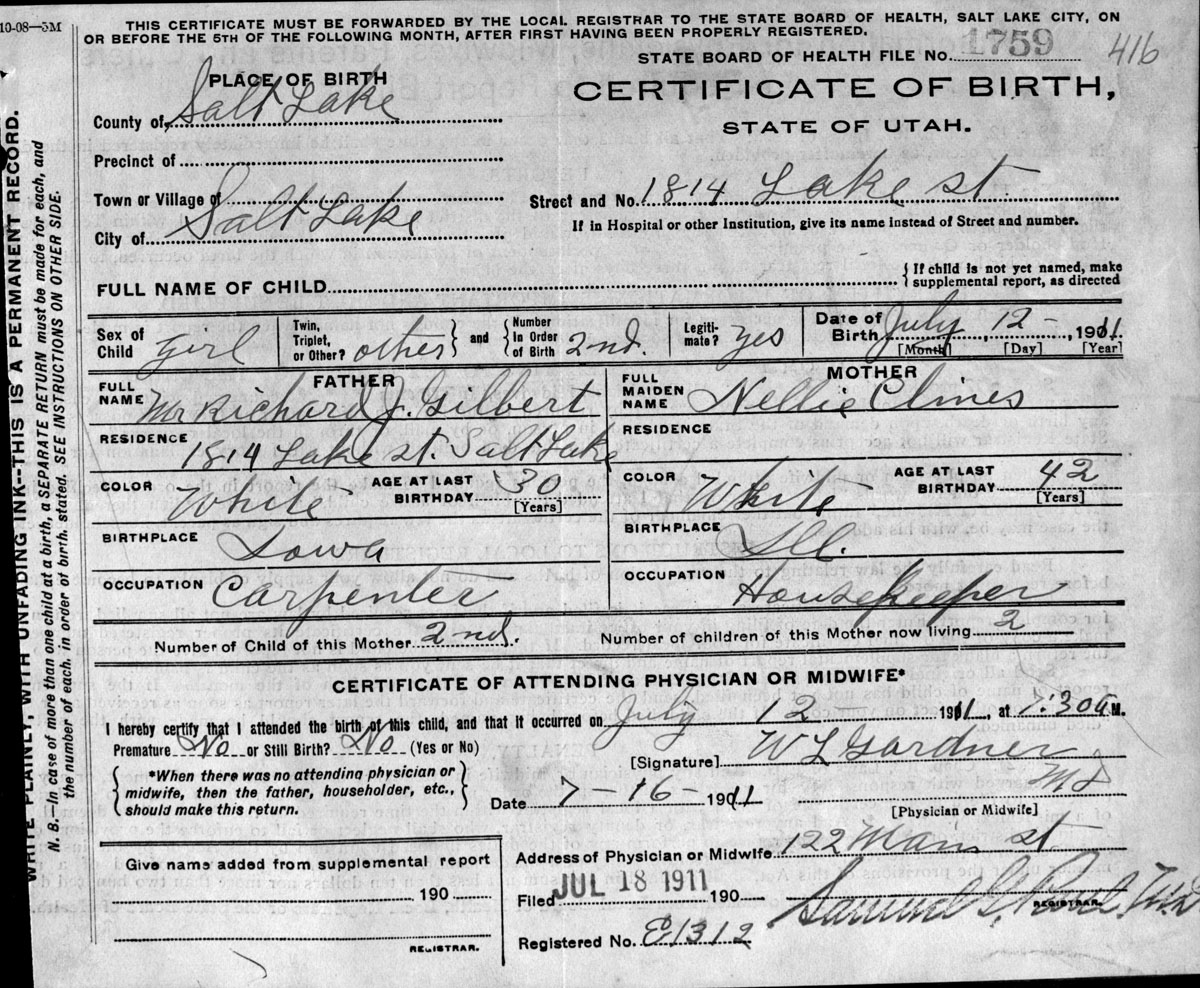 10-08—5M
THIS CERTIFICATE MUST BE FORWARDED BY THE LOCAL REGISTRAR TO THE STATE BOARD OF HEALTH, SALT LAKE CITY, ON
OR BEFORE THE 5TH OF THE FOLLOWING MONTH, AFTER FIRST HAVING BEEN PROPERLY REGISTERED.
STATE BOARD OF HEALTH FILE NO. 1759 416
PLACE OF BIRTH
CERTIFICATE OF BIRTH,
STATE OF UTAH.
County of, Salt Lake
Precinct of
Town or Village of
Street and No. 1814 Lake st
City of Salt Lake
If in Hospital or other Institution, give its name instead of Street and number.
FULL NAME OF CHILD
{If child is not yet named, make
supplemental report, as directed
Sex of Child Girl Twin, Triplet, or Other? other and Number In Order of Birth 2nd. Legitimate? yes Date of Birth July 12 - 1911
[Month] [Day] [Year]
FATHER MOTHER
FULL NAME Mr Richard J. Gilbert FULL MAIDEN NAME Nellie Clines
RESIDENCE 1814 Lake st. Salt Lake RESIDENCE
COLOR White AGE AT LAST BIRTHDAY 30 [Years] COLOR White AGE AT LAST BIRTHDAY 42 [Years]
BIRTHPLACE Iowa BIRTHPLACE Ill.
OCCUPATION Carpenter OCCUPATION Housekeeper
Number of Child of this Mother 2nd. Number of children of this Mother now living 2
CERTIFICATE OF ATTENDING PHYSICIAN OR MIDWIFE*
I hereby certify that I attended the birth of this child, and that it occurred on July 12 1911, at 1:30 a M.
Premature No or Still Birth? No (Yes or No)
[Signature] W L Gardner
MD
[Physician or Midwife]
{*When there was no attending physician or
midwife, then the father, householder, etc.,
should make this return.}
Date 7-16-1911
Give name added from supplemental report
190
REGISTRAR.
Address of Physician or Midwife 122 Main st
Filed JUL 18 1911 190
REGISTRAR.
Registered No. E1312
WRITE PLAINLY, WITH UNFADING INK--THIS IS A PERMANENT RECORD.
N. B.—In case of more than one child at a birth, a SEPARATE RETURN must be made for each, and
the number of each, in order of birth, stated. SEE INSTRUCTIONS ON OTHER SIDE.